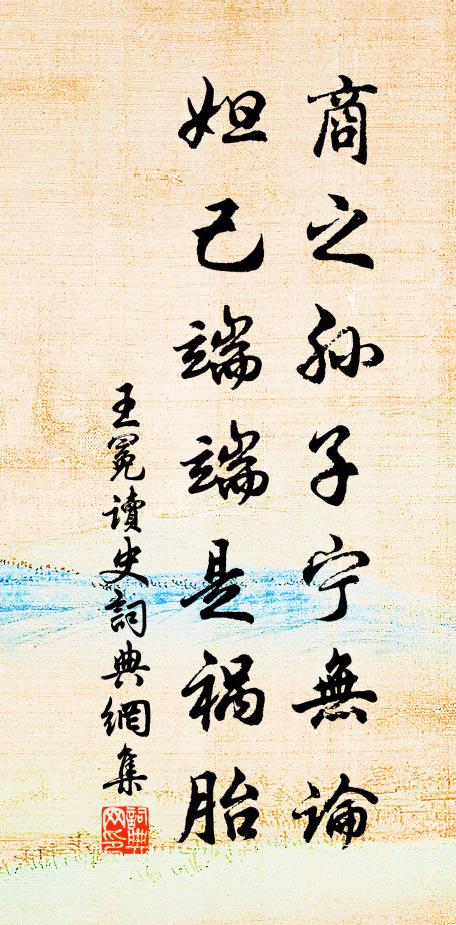 商之孙子宁無論
妲己端端是祸胎
王冕讀史詞典網集
詞典网印